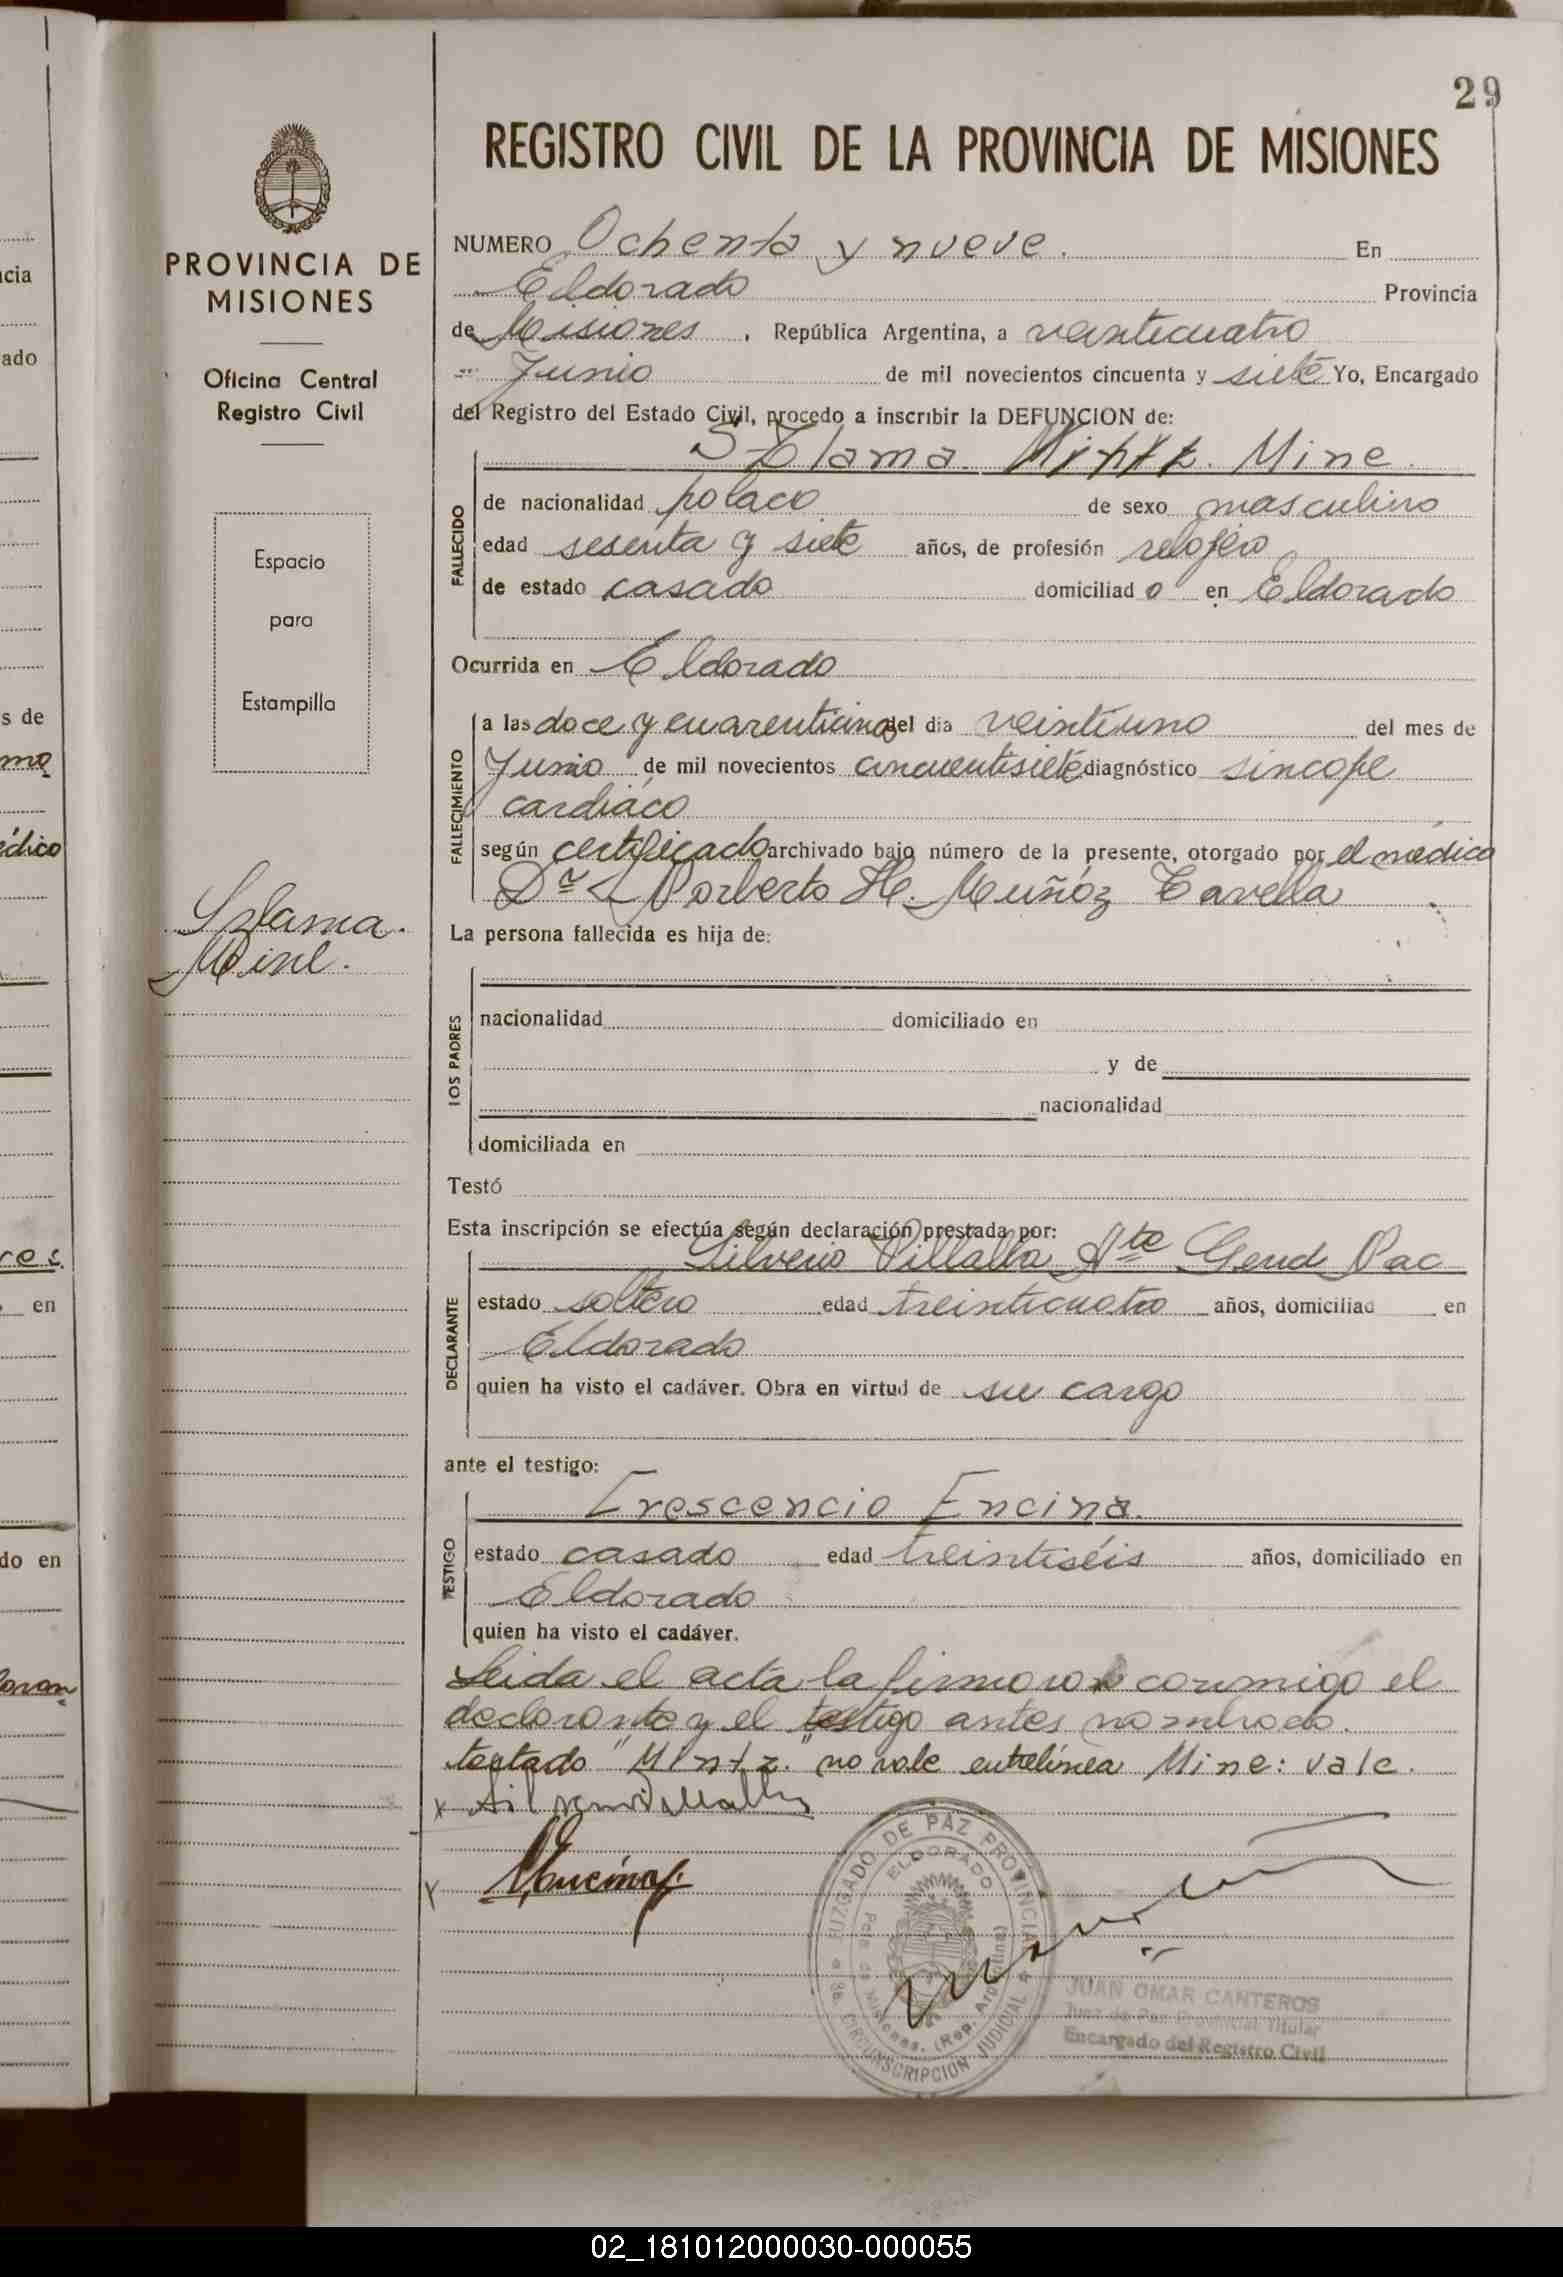 29
REGISTRO CIVIL DE LA PROVINCIA DE MISIONES
PROVINCIA DE
MISIONES
Oficina Central
Registro Civil
Espacio
para
Estampilla
Szlama.
Mine.
NUMERO Ochenta y nueve. En
Eldorado Provincia
de Misiones, República Argentina, a veinticuatro
Junio de mil novecientos cincuenta y siete Yo, Encargado
del Registro del Estado Civil, procedo a inscribir la DEFUNCION de:
Szlama. Mintz. Mine.
FALLECIDO
de nacionalidad polaco de sexo masculino
edad sesenta y siete años, de profesión relojero
de estado casado domiciliado en Eldorado
Ocurrida en Eldorado
FALLECIMIENTO
a las doce y cuarenticinco del dia veintiuno del mes de
Junio de mil novecientos cincuentisiete diagnóstico sincope
cardiáco
según certificado archivado bajo número de la presente, otorgado por el médico
Dr Norberto H. Muñóz Tavella
La persona fallecida es hija de:
LOS PADRES
nacionalidad domiciliado en
y de
nacionalidad
domiciliada en
Testó
Esta inscripción se efectúa según declaración prestada por:
Silverio Villalba Ate Gend Nac
DECLARANTE
estado soltero edad treinticuatro años, domiciliad en
Eldorado
quien ha visto el cadáver. Obra en virtud de su cargo
ante el testigo:
Crescencio Encina.
TESTIGO
estado casado edad treintiséis años, domiciliado en
Eldorado
quien ha visto el cadáver.
Leida el acta la firmaron conmigo el
declarante y el testigo antes nombrado.
testado "Mintz." no vale entrelínea Mine: vale.
x Silverio Villalba
x Encina
JUZGADO DE PAZ PROVINCIAL
ELDORADO
Pcia. de Misiones. (Rep. Argentina)
CIRCUNSCRIPCION JUDICIAL
JUAN OMAR CANTEROS
Juez de Paz Provincial Titular
Encargado del Registro Civil
02_181012000030-000055